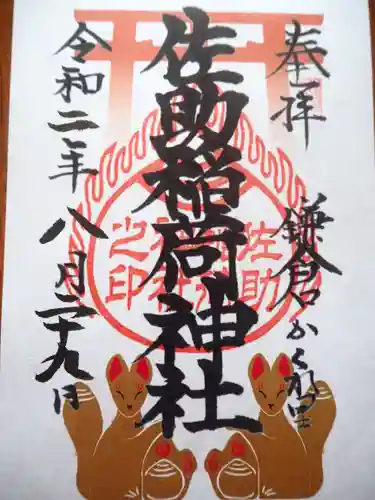 奉拝
鎌倉かくれ里
佐助稲荷神社
佐助稲荷神社之印
令和二年
八月二十九日